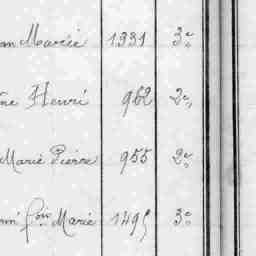 an Marie 1331 3e
ne Henri 962 2e
Marie Pierre 955 2e
fois Marie 1495 3e